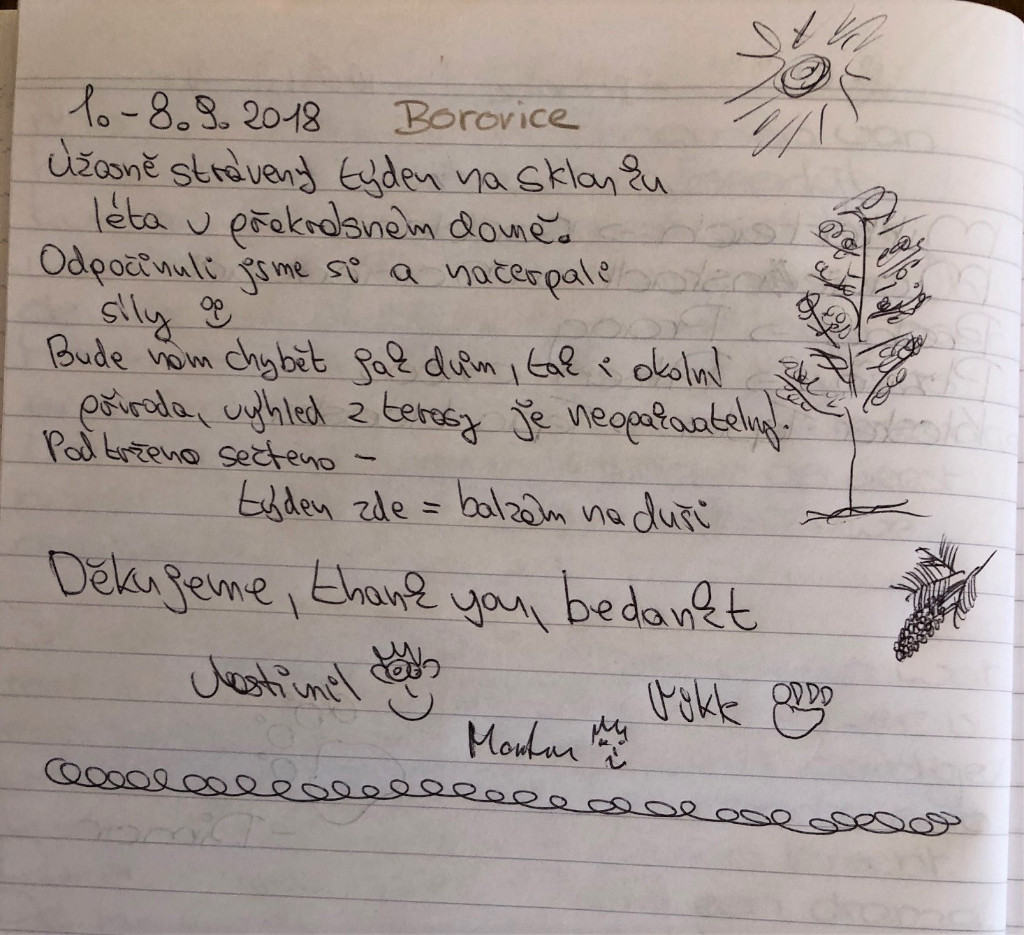 1. - 8.9. 2018 Borovice
Úžasně strávený týden na sklonku
léta v překrásném domě.
Odpočinuli jsme si a načerpali
síly
Bude nám chybět jak dům, tak i okolní
příroda, výhled z terasy je neopakovatelný.
Podtrženo sečteno -
týden zde = balzám na duši
Děkujeme, thank you, bedankt
Vlastimil